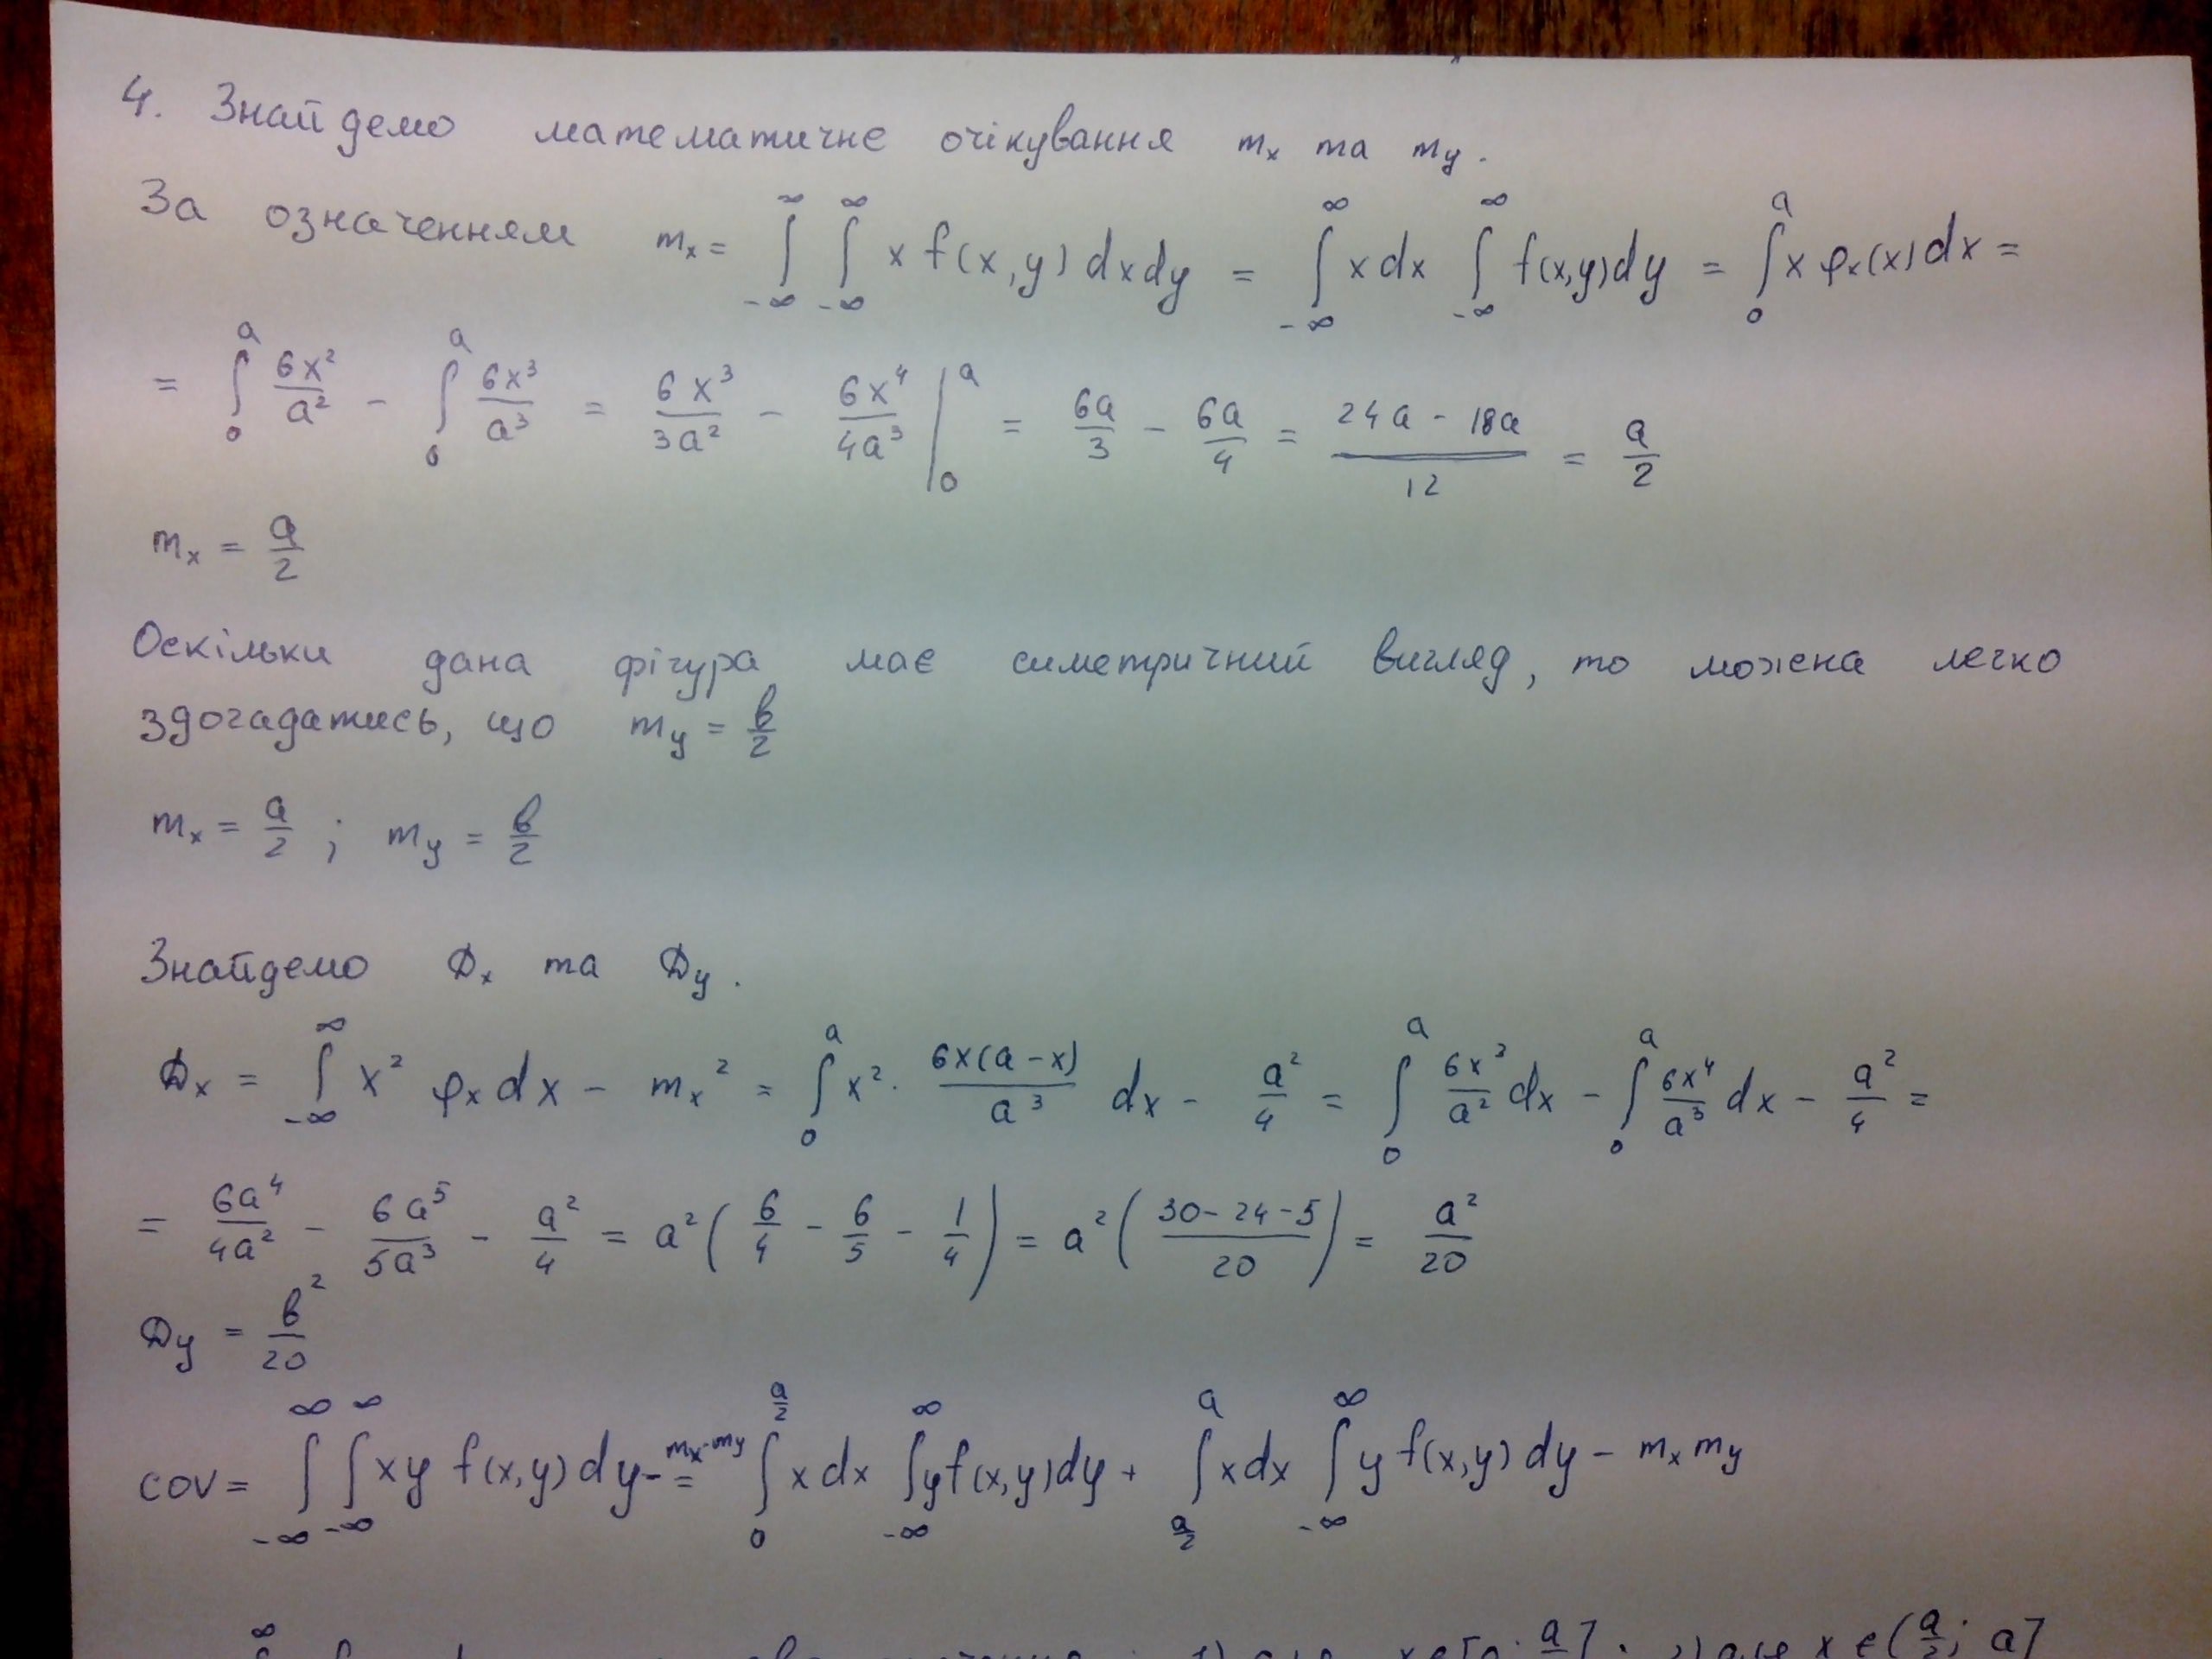 4. Знайдемо математичне очікування mₓ та m_y.
За означенням mₓ = ∫_{-∞}^{∞} ∫_{-∞}^{∞} x f(x,y) dxdy = ∫_{-∞}^{∞} x dx ∫_{-∞}^{∞} f(x,y)dy = ∫_0^a x φₓ(x) dx =
= ∫_0^a 6x²/a² - ∫_0^a 6x³/a³ = 6x³/3a² - 6x⁴/4a³ |_0^a = 6a/3 - 6a/4 = (24a - 18a)/12 = a/2
mₓ = a/2
Оскільки дана фігура має симетричний вигляд, то можна легко
здогадатись, що m_y = b/2
mₓ = a/2 ; m_y = b/2
Знайдемо Dₓ та D_y.
Dₓ = ∫_{-∞}^{∞} x² φₓ dx - mₓ² = ∫_0^a x² · 6x(a-x)/a³ dx - a²/4 = ∫_0^a 6x³/a² dx - ∫_0^a 6x⁴/a³ dx - a²/4 =
= 6a⁴/4a² - 6a⁵/5a³ - a²/4 = a² (6/4 - 6/5 - 1/4) = a² ((30-24-5)/20) = a²/20
D_y = b²/20
cov = ∫_{-∞}^{∞} ∫_{-∞}^{∞} xy f(x,y) dy - mₓ·m_y = ∫_0^{a/2} x dx ∫_{-∞}^{∞} y f(x,y)dy + ∫_{a/2}^a x dx ∫_{-∞}^{∞} y f(x,y) dy - mₓ m_y